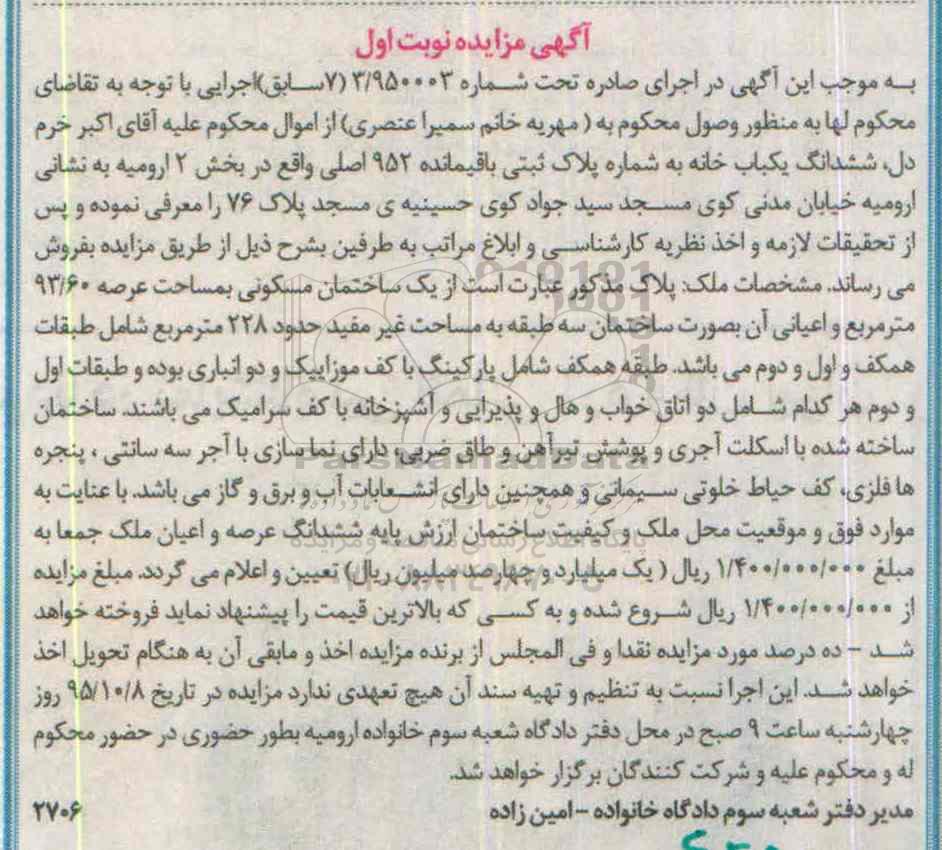 آگهی مزایده نوبت اول
به موجب این آگهی در اجرای صادره تحت شماره ۳/۹۵۰۰۰۳ (۷سابق)اجرایی با توجه به تقاضای
محکوم لها به منظور وصول محکوم به ( مهریه خانم سمیرا عنصری) از اموال محکوم علیه آقای اکبر خرم
دل، ششدانگ یکباب خانه به شماره پلاک ثبتی باقیمانده ۹۵۲ اصلی واقع در بخش ۲ ارومیه به نشانی
ارومیه خیابان مدنی کوی مسجد سید جواد کوی حسینیه ی مسجد پلاک ۷۶ را معرفی نموده و پس
از تحقیقات لازمه و اخذ نظریه کارشناسی و ابلاغ مراتب به طرفین بشرح ذیل از طریق مزایده بفروش
می رساند. مشخصات ملک: پلاک مذکور عبارت است از یک ساختمان مسکونی بمساحت عرصه ۹۳/۶۰
مترمربع و اعیانی آن بصورت ساختمان سه طبقه به مساحت غیر مفید حدود ۲۲۸ مترمربع شامل طبقات
همکف و اول و دوم می باشد. طبقه همکف شامل پارکینگ با کف موزاییک و دو انباری بوده و طبقات اول
و دوم هر کدام شامل دو اتاق خواب و هال و پذیرایی و آشپزخانه با کف سرامیک می باشند. ساختمان
ساخته شده با اسکلت آجری و پوشش تیرآهن و طاق ضربی، دارای نما سازی با آجر سه سانتی ، پنجره
ها فلزی، کف حیاط خلوتی سیمانی و همچنین دارای انشعابات آب و برق و گاز می باشد. با عنایت به
موارد فوق و موقعیت محل ملک و کیفیت ساختمان ارزش پایه ششدانگ عرصه و اعیان ملک جمعا به
مبلغ ۱/۴۰۰/۰۰۰/۰۰۰ ریال ( یک میلیارد و چهارصد میلیون ریال) تعیین و اعلام می گردد. مبلغ مزایده
از ۱/۴۰۰/۰۰۰/۰۰۰ ریال شروع شده و به کسی که بالاترین قیمت را پیشنهاد نماید فروخته خواهد
شد – ده درصد مورد مزایده نقدا و فی المجلس از برنده مزایده اخذ و مابقی آن به هنگام تحویل اخذ
خواهد شد. این اجرا نسبت به تنظیم و تهیه سند آن هیچ تعهدی ندارد مزایده در تاریخ ۹۵/۱۰/۸ روز
چهارشنبه ساعت ۹ صبح در محل دفتر دادگاه شعبه سوم خانواده ارومیه بطور حضوری در حضور محکوم
له و محکوم علیه و شرکت کنندگان برگزار خواهد شد.
مدیر دفتر شعبه سوم دادگاه خانواده – امین زاده ۲۷۰۶
ParsNamadData